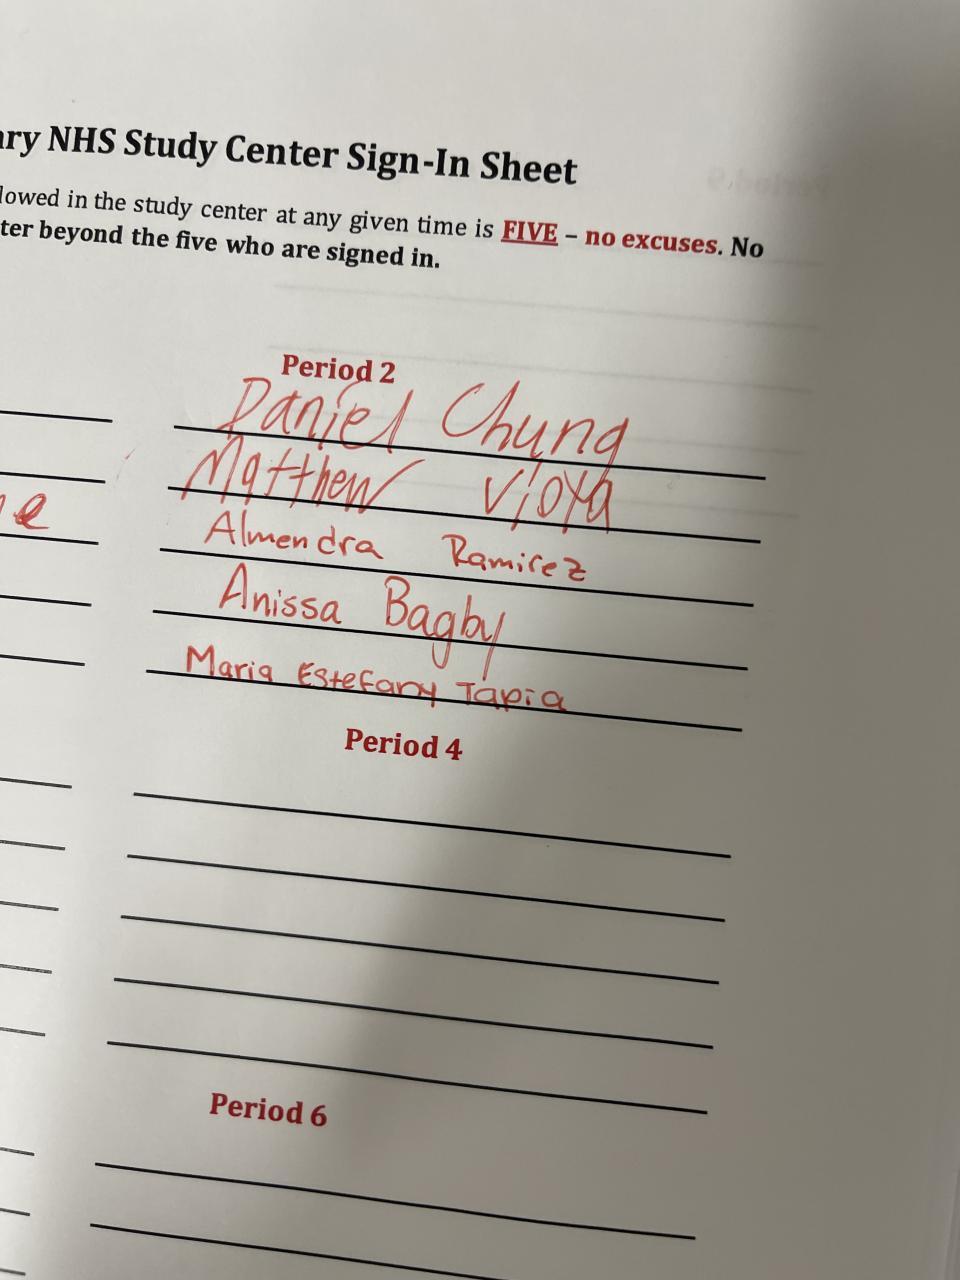 ary NHS Study Center Sign-In Sheet
lowed in the study center at any given time is FIVE – no excuses. No
ter beyond the five who are signed in.
Period 2
Daniel Chung
Matthew Vioya
Almendra Ramirez
Anissa Bagby
ne
Maria Estefany Tapia
Period 4
Period 6